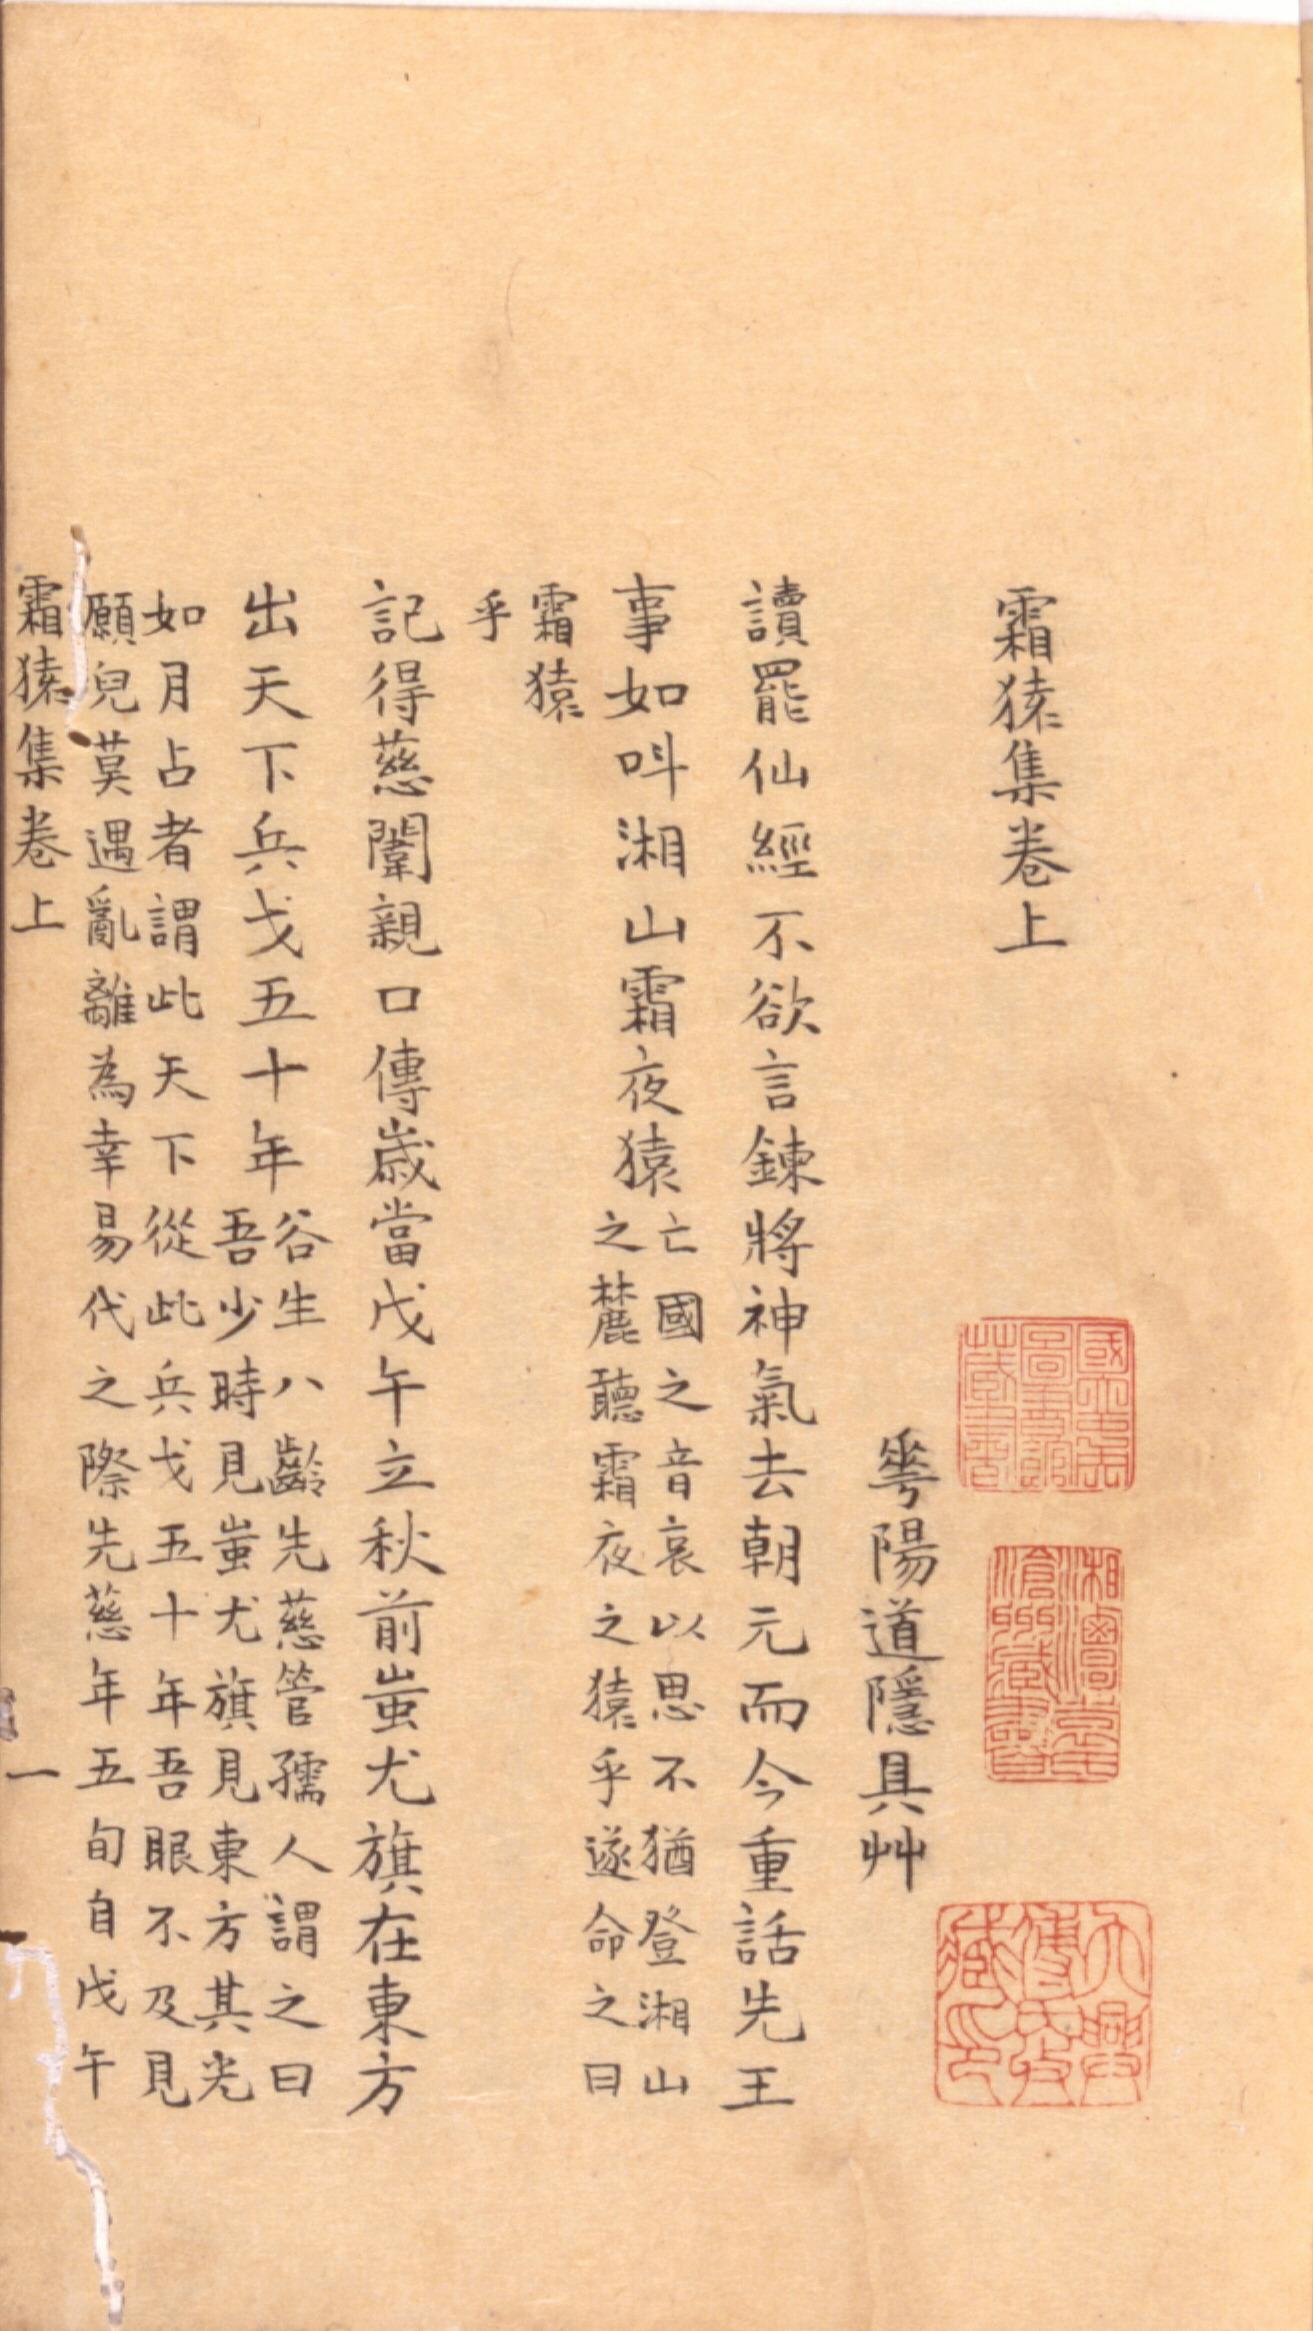 霜猿集卷上
粤陽道隱具艸
讀罷仙經不欲言鍊將神氣去朝元而今重話先王
事如呌湘山霜夜猿
亡國之音哀以思不猶登湘山
之麓聽霜夜之猿乎遂命之曰
霜猿
乎
記得慈闈親口傳歲當戊午立秋前蚩尤旗在東方
出天下兵戈五十年
谷生八齡先慈管孺人謂之曰
吾少時見蚩尤旗見東方其光
如月占者謂此天下從此兵戈五十年吾眼不及見
願兒莫遇亂離為幸易代之際先慈年五旬自戊午
霜猿集卷上
一
國立中央圖書館藏書